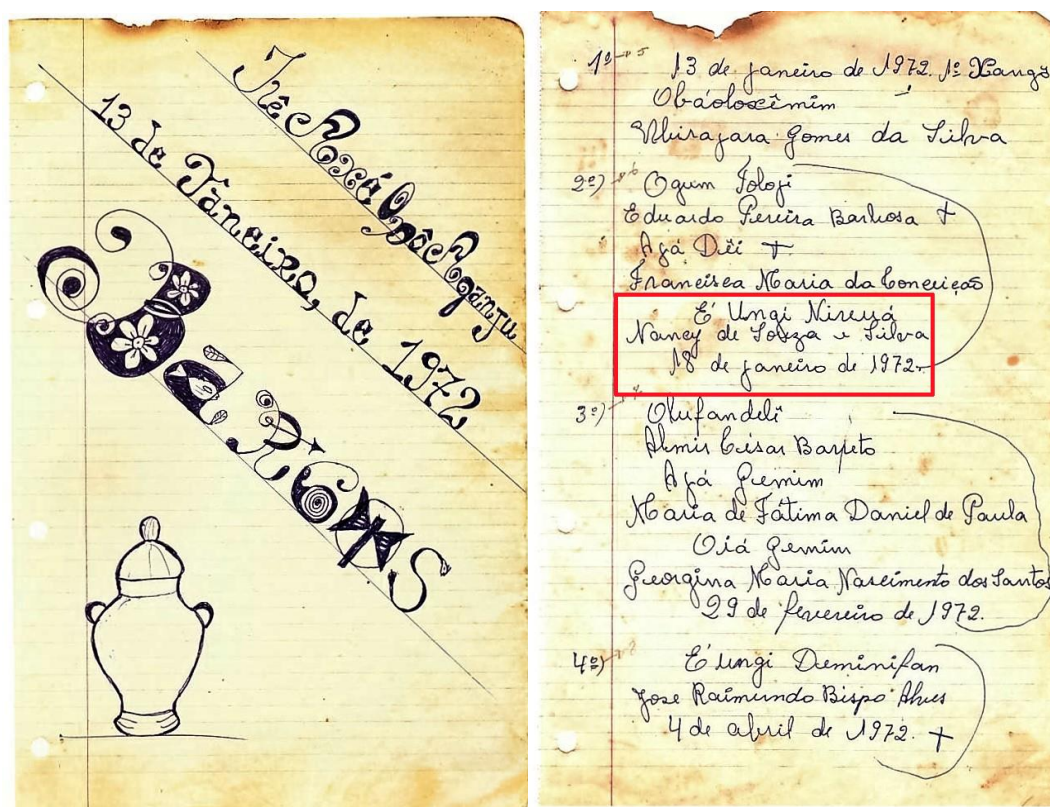 13 de Janeiro, de 1972
1º 13 de janeiro de 1972. 1º Xangô
Obáoloxêmim
Ubirajara Gomes da Silva
2º) Ogum
Eduardo Pereira Barbosa +
Ajá Dêi +
Francisca Maria da Conceição
É Ungi
Nancy de Souza e Silva
18 de janeiro de 1972.
3º) Olufandeli
Almir César Barreto
Ajá Gemim
Maria de Fátima Daniel de Paula
Oiá Gemim
Georgina Maria Nascimento dos Santos
29 de fevereiro de 1972.
4º) É ungi Deminifan
Jose Raimundo Bispo Alves
4 de abril de 1972. +